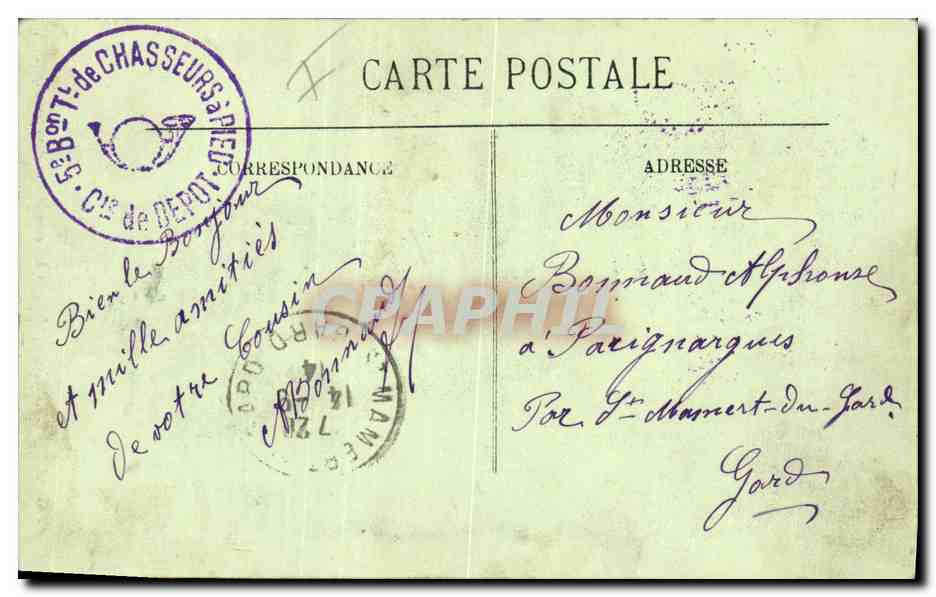 CARTE POSTALE
5e Bon Tl. de CHASSEURS à PIED
Cie de DEPOT
CORRESPONDANCE
ADRESSE
Bien le Bonjour
et mille amitiés
de votre Cousin
ABonnaud
Monsieur
Bonnaud Alphonse
à Parignargues
Par St Mamert-du-Gard
Gard
CPAPHIL
ST MAMERT
GARD
7 21
14